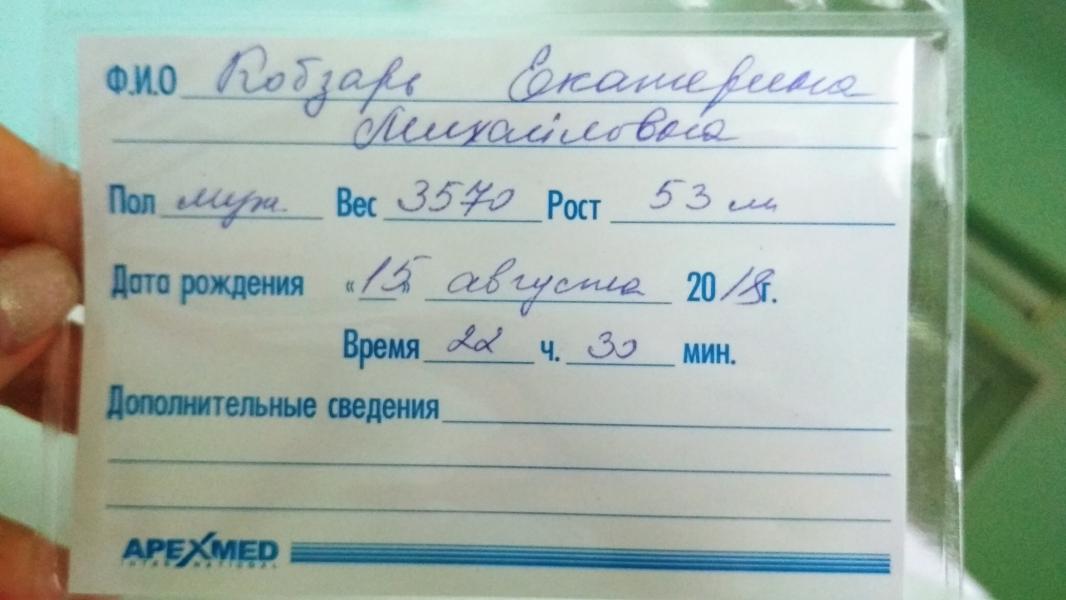 Ф.И.О Кобзарь Екатерина
Михайловна
Пол муж. Вес 3570 Рост 53 м
Дата рождения «15» августа 2018г.
Время 22 ч. 30 мин.
Дополнительные сведения
APEXMED
INTERNATIONAL